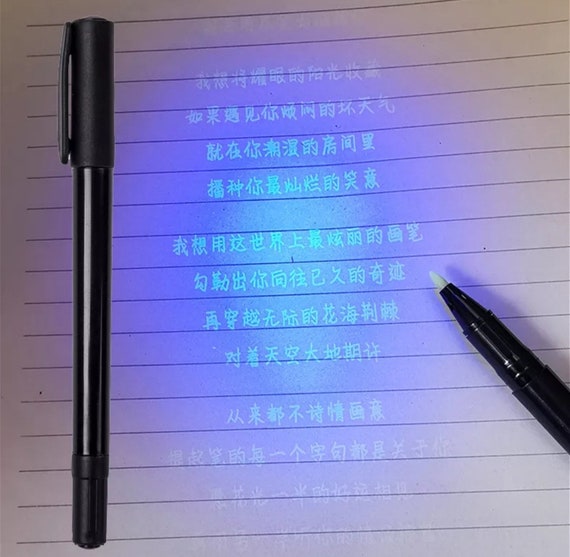 我想将耀眼的阳光收藏
如果遇见你烦闷的坏天气
就在你潮湿的房间里
播种你最灿烂的笑意
我想用这世界上最炫丽的画笔
勾勒出你向往已久的奇迹
再穿越无际的花海荆棘
对着天空大地期许
从来都不诗情画意
提起笔的每一个字句都是关于你
愿花光一半的好运相